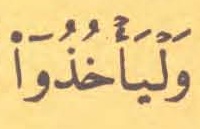 وَلْيَأْخُذُوٓا۟